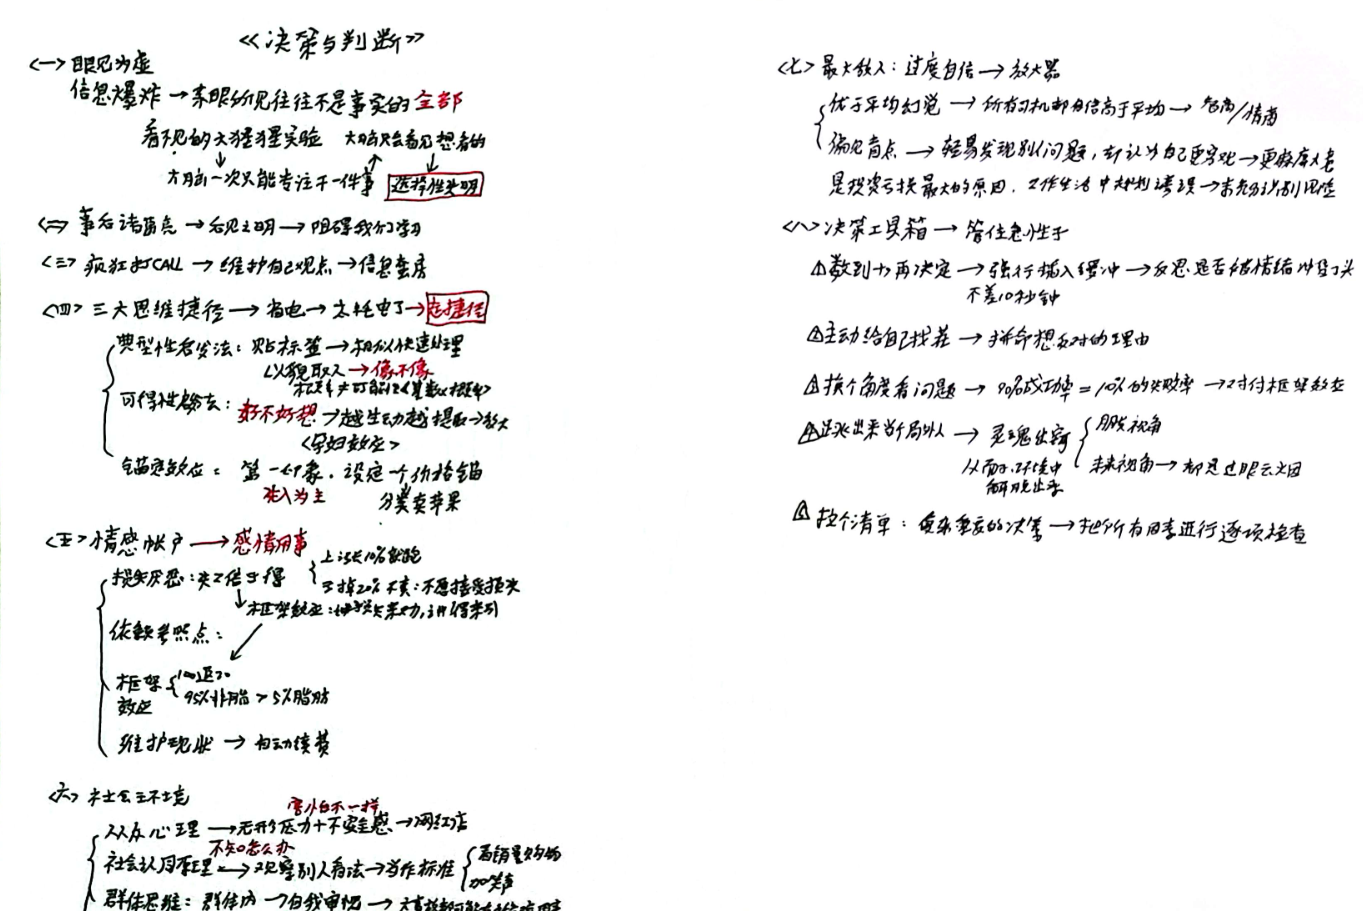 《决策与判断》
<一> 眼见为虚
信息爆炸→亲眼所见往往不是事实的全部
看不见的大猩猩实验 大脑只会看见想看的
大脑一次只能专注干一件事 选择性失明
<二> 事后诸葛亮→后见之明→阻碍我们学习
<三> 疯狂打CALL→维护自己观点→信息茧房
<四> 三大思维捷径→省电→太耗电了→走捷径
典型性启发法：贴标签→相似快速处理
以貌取人→像不像
概率≠可能性<基数×概率>
可得性启发法：好不好想→越生动越提取→放大
<孕妇效应>
锚定效应：第一印象，设定一个价格锚
先入为主 分类卖苹果
<五> 情感帐户→感情用事
损失厌恶：失2倍于得
上涨10%就跑
下掉20%不卖：不愿接受损失
框架效应：
依赖参照点：
框架效应
100返20
95%非脂>5%脂肪
维护现状→自动续费
<六> 社会环境
害怕不一样
从众心理→无形压力+不安全感→网红店
不知怎么办
社会认同原理→观察别人看法→当作标准
看销量购物
加笑声
群体思维：群体内→自我审视→
<七> 最大敌人：过度自信→放大器
优于平均幻觉→所有司机都自信高于平均→智商/情商
偏见盲点→轻易发现别人问题，却认为自己更客观→更麻痹大意
是投资亏损最大的原因，工作生活中规划谬误→未充分识别风险
<八> 决策工具箱→管住急性子
1 数到十再决定→强行插入缓冲→反思是否被情绪冲昏了头
不差10秒钟
2 主动给自己找茬→拼命想反对的理由
3 换个角度看问题→90%成功率=10%的失败率→对付框架效应
4 跳出来当局外人→灵魂出窍
朋友视角
从而从环境中解脱出来
未来视角→都是过眼云烟
5 拉个清单：做条重要的决策→把所有因素进行逐项检查